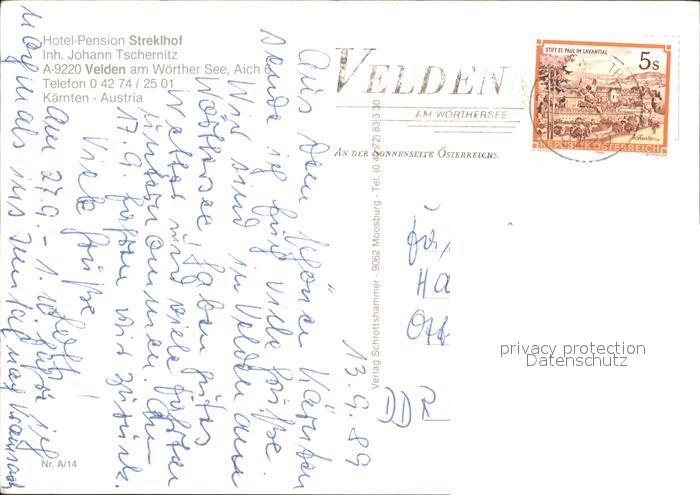 Hotel-Pension Streklhof
Inh. Johann Tschernitz
A-9220 Velden am Wörther See, Aich
Telefon 0 42 74 / 25 01
Kärnten - Austria
VELDEN
AM WÖRTHERSEE
AN DER SONNENSEITE ÖSTERREICHS.
STIFT ST. PAUL IM LAVANTTAL
5s
REPUBLIK ÖSTERREICH
13.9.89
Aus dem schönen Kärnten
sende ich viele Grüße.
Wir sind in Velden am
Wörthersee, haben gutes
Wetter und viele Fahrten
unternommen. Am
17.9. fahren wir zurück.
Viele Grüße
Am 27.9. - 1. fahre ich
nochmals ins
Verlag Schrottshammer · 9062 Moosburg · Tel. (0 42 72) 83 3 30
Nr. A/14
privacy protection
Datenschutz